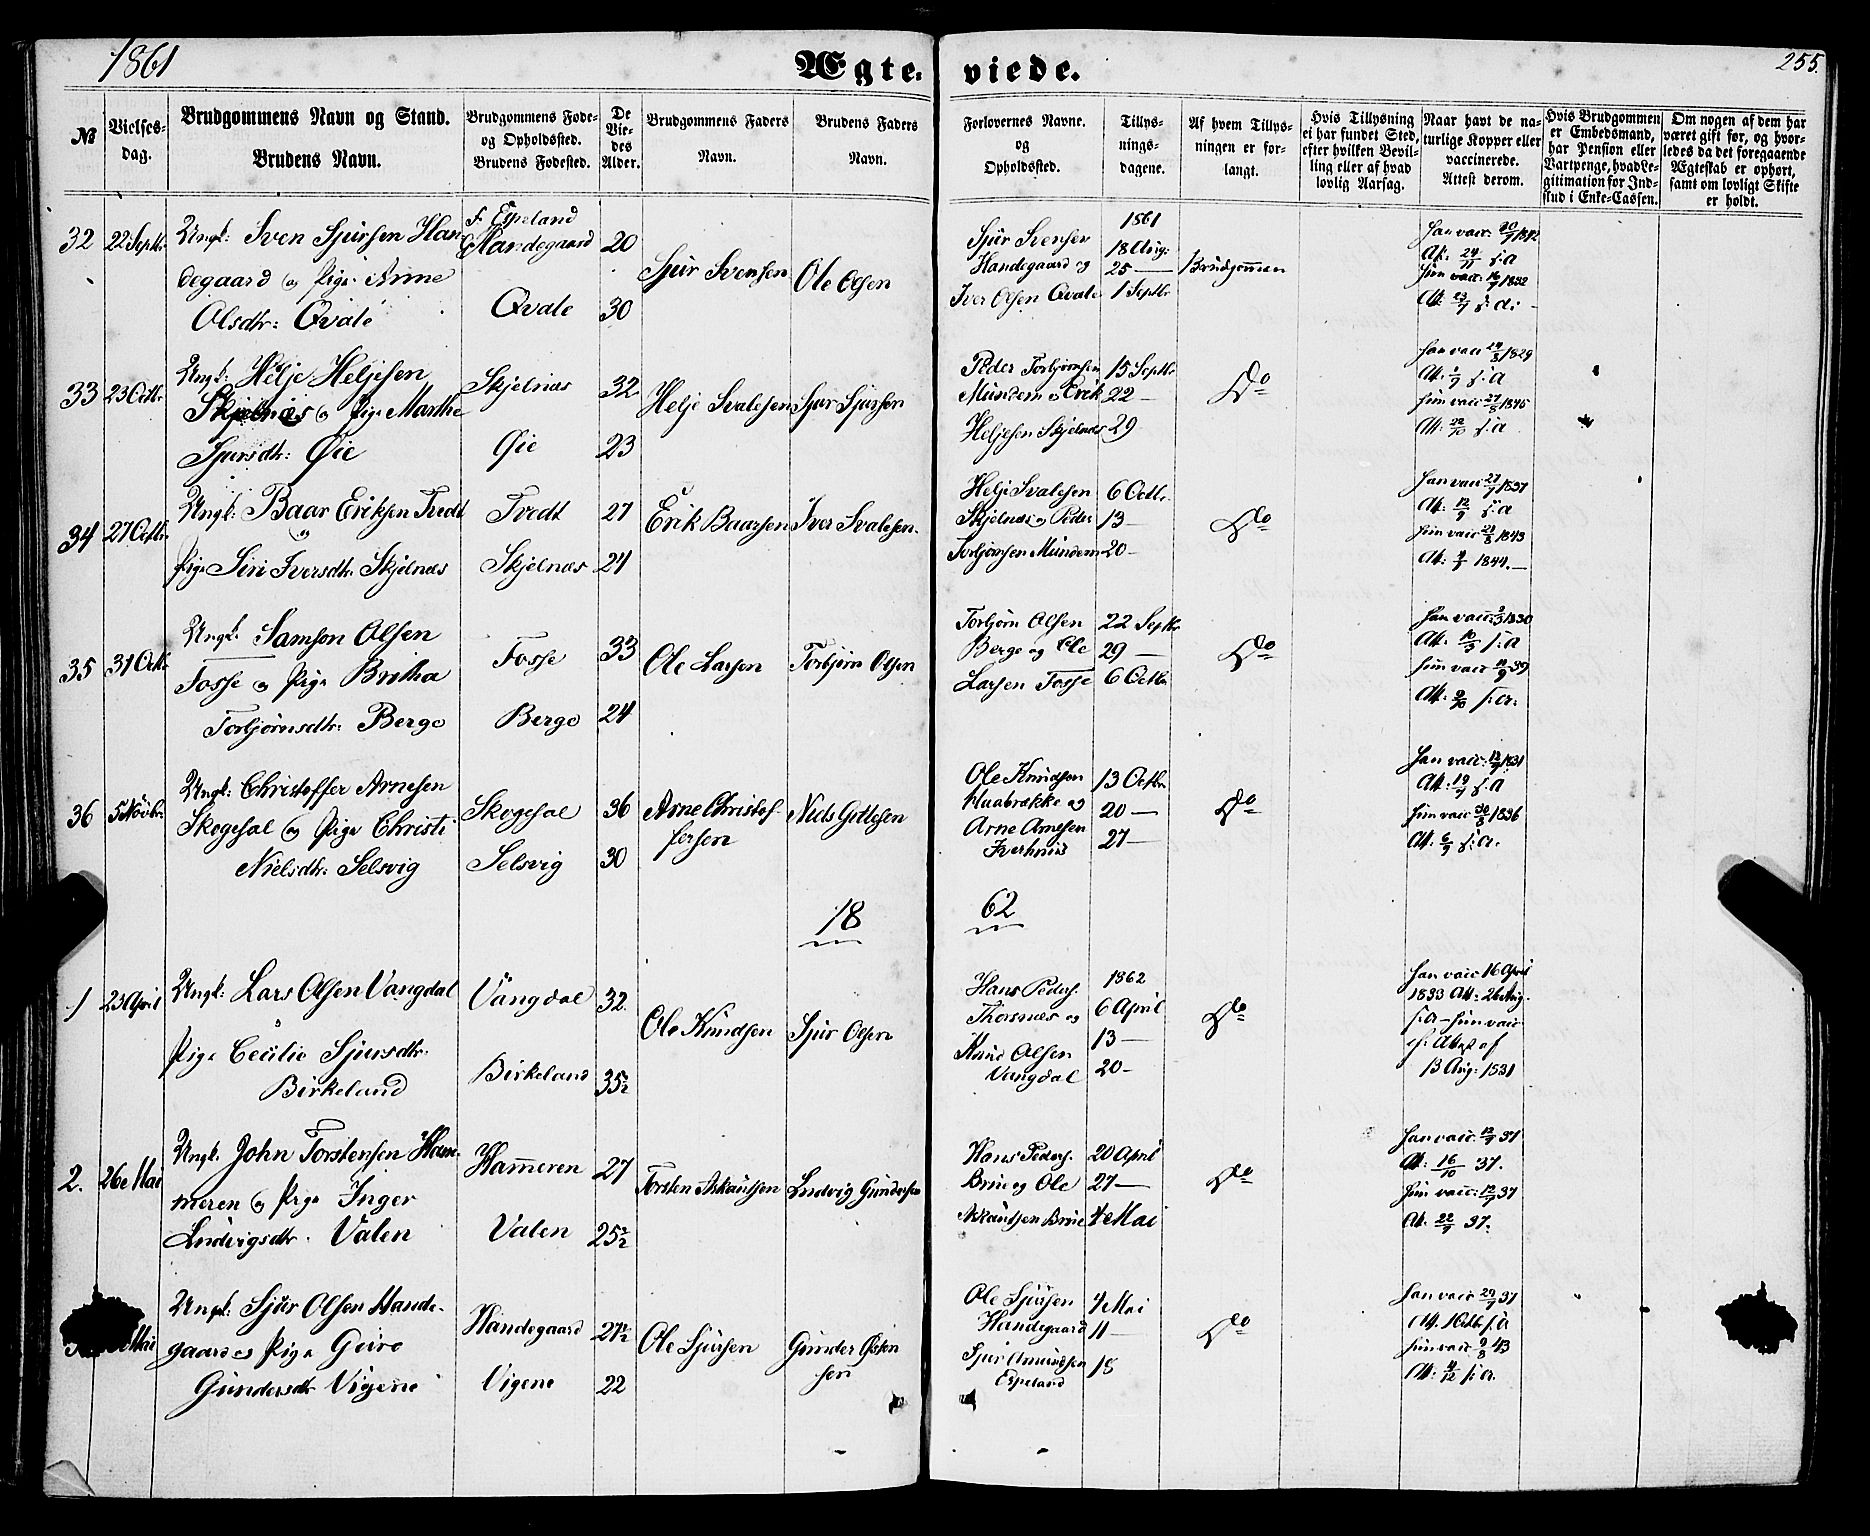 1861
Ægteviede.
255.
№
Vielses-
dag.
Brudgommens Navn og Stand.
Brudens Navn.
Brudgommens Føde-
og Opholdssted.
Brudens Fødested.
De
Vie-
des
Alder.
Brudgommens Faders
Navn.
Brudens Faders
Navn.
Forlovernes Navne.
og
Opholdssted.
Tillys-
nings-
dagene.
Af hvem Tillys-
ningen er for-
langt.
Hvis Tillysning
ei har fundet Sted,
efter hvilken Bevil-
ling eller af hvad
lovlig Aarsag.
Naar havt de na-
turlige Kopper eller
vaccinerede.
Attest derom.
Hvis Brudgommen
er Embedsmand,
har Pension eller
Vartpenge, hvad Le-
gitimation for Ind-
skud i Enke-Cassen.
Om nogen af dem har
været gift før, og hvor-
ledes da det foregaaende
Ægteskab er ophørt,
samt om lovligt Skifte
er holdt.
32 22 Septbr.
Ungk: Sven Sjursen Han-
degaard og Pige Anne
Olsdtr: Qvale
f. Espeland
Handegaard
Qvale
20
30
Sjur Svensen
Ole Olsen
Sjur Svensen
Handegaard og
Iver Olsen Qvale
1861
18 Aug:
25 —
1 Septbr
Brudgommen
Han vacc: 20/9 1842
Att: 24/11 s: a
Hun vacc: 16/9 1832
Att: 23/9 s: a: -
33 23 Octbr.
Ungk: Helje Heljesen
Skjelnæs og Pige Marthe
Sjursdtr: Øie
Skjelnæs
Øie
32
23
Helje Svalesen
Sjur Sjursen
Peder Torbjørnsen
Mundem og Erik
Heljesen Skjelnæs
15 Septbr
22 —
29
Do
Han vacc 24/8 1829
Att: s: a
Hun vacc 27/8 1845
Att: 22/10 s: a
34 27 Octbr.
Ungk: Baar Eriksen Tvedt
og
Pige Siri Iversdtr. Skjelnæs
Tvedt
Skjelnæs
27
24
Erik Baarsen
Iver Svalesen.
Helje Svalesen
Skjelnæs og Peder
Torbjørnsen Mundem
6 Octbr.
13 —
20 -
Do
Han vacc 27/7 1837
Att: 12/9 s: a
Hun vacc 21/8 1843
Att: 1844. —
35 31 Octbr.
Ungk. Samson Olsen
Fosse og Pige Britha
Torbjørnsdtr: Berge
Fosse
Berge
33
24
Ole Larsen
Torbjørn Olsen
Torbjørn Olsen
Berge og Ole
Larsen Fosse
22 Septbr.
29 —
6 Octbr
Do
Han vacc: 1830
Att: s: a
Hun vacc 39
Att: 9/10 s: a:
36 5 Novbr.
Ungk: Christoffer Arnesen
Skogesal og Pige Christi
Nielsdtr: Selsvig
Skogesal
Selsvig
36
30
Arne Christof-
fersen
Niels Gitlesen
Ole Knudsen
Huabrække og
Arne Arnesen
13 Octbr.
20 —
27 —
Do
Han vacc: 1831
Att: 19/9 s: a
Hun vacc 30/8 1836
Att: 6/9 s: a.
18
62
1 23 April
Ungk: Lars Olsen Vangdal
Pige Cecilie Sjursdtr.
Birkeland
Vangdal
Birkeland
32.
35½
Ole Knudsen
Sjur Olsen
Hans Peders.
Thorsnæs og
Knud Olsen
Vangdal
1862
6 April
13 —
20 -
Do
Han vacc 16 April
1833 Att: 26 Aug.
s: a - Hun vacc
if: Attest af
13 Aug: 1831
2. 26e Mai
Ungk. John Torstensen Ham-
meren og Pige Inger
Ludvigsdtr. Valen
Hammeren
Valen
27
25½
Torsten Askautsen
Ludvig Gundersen
Hans Peders.
Brue og Ole
Askautsen Brue
20 April
27 —
4 Mai
Do
Han vacc. 12/9 37
Att: 16/10 37.
Hun vacc: 12/9 37
Att. 22/9 37.
Mai
Ungk: Sjur Olsen Hande-
gaard og Pige Geiro
Gundersdtr Vigene
Handegaard
Vigene
27½
22
Ole Sjursen
Gunder Østen
sen
Ole Sjursen
Handegaard
Sjur Amundsen
Espeland
4 Mai
11 —
18
Do
Han vacc 29/7 37
Att. 1 Octb s: a
Hun vacc 9/8 43
Att: 4/12 s: a.